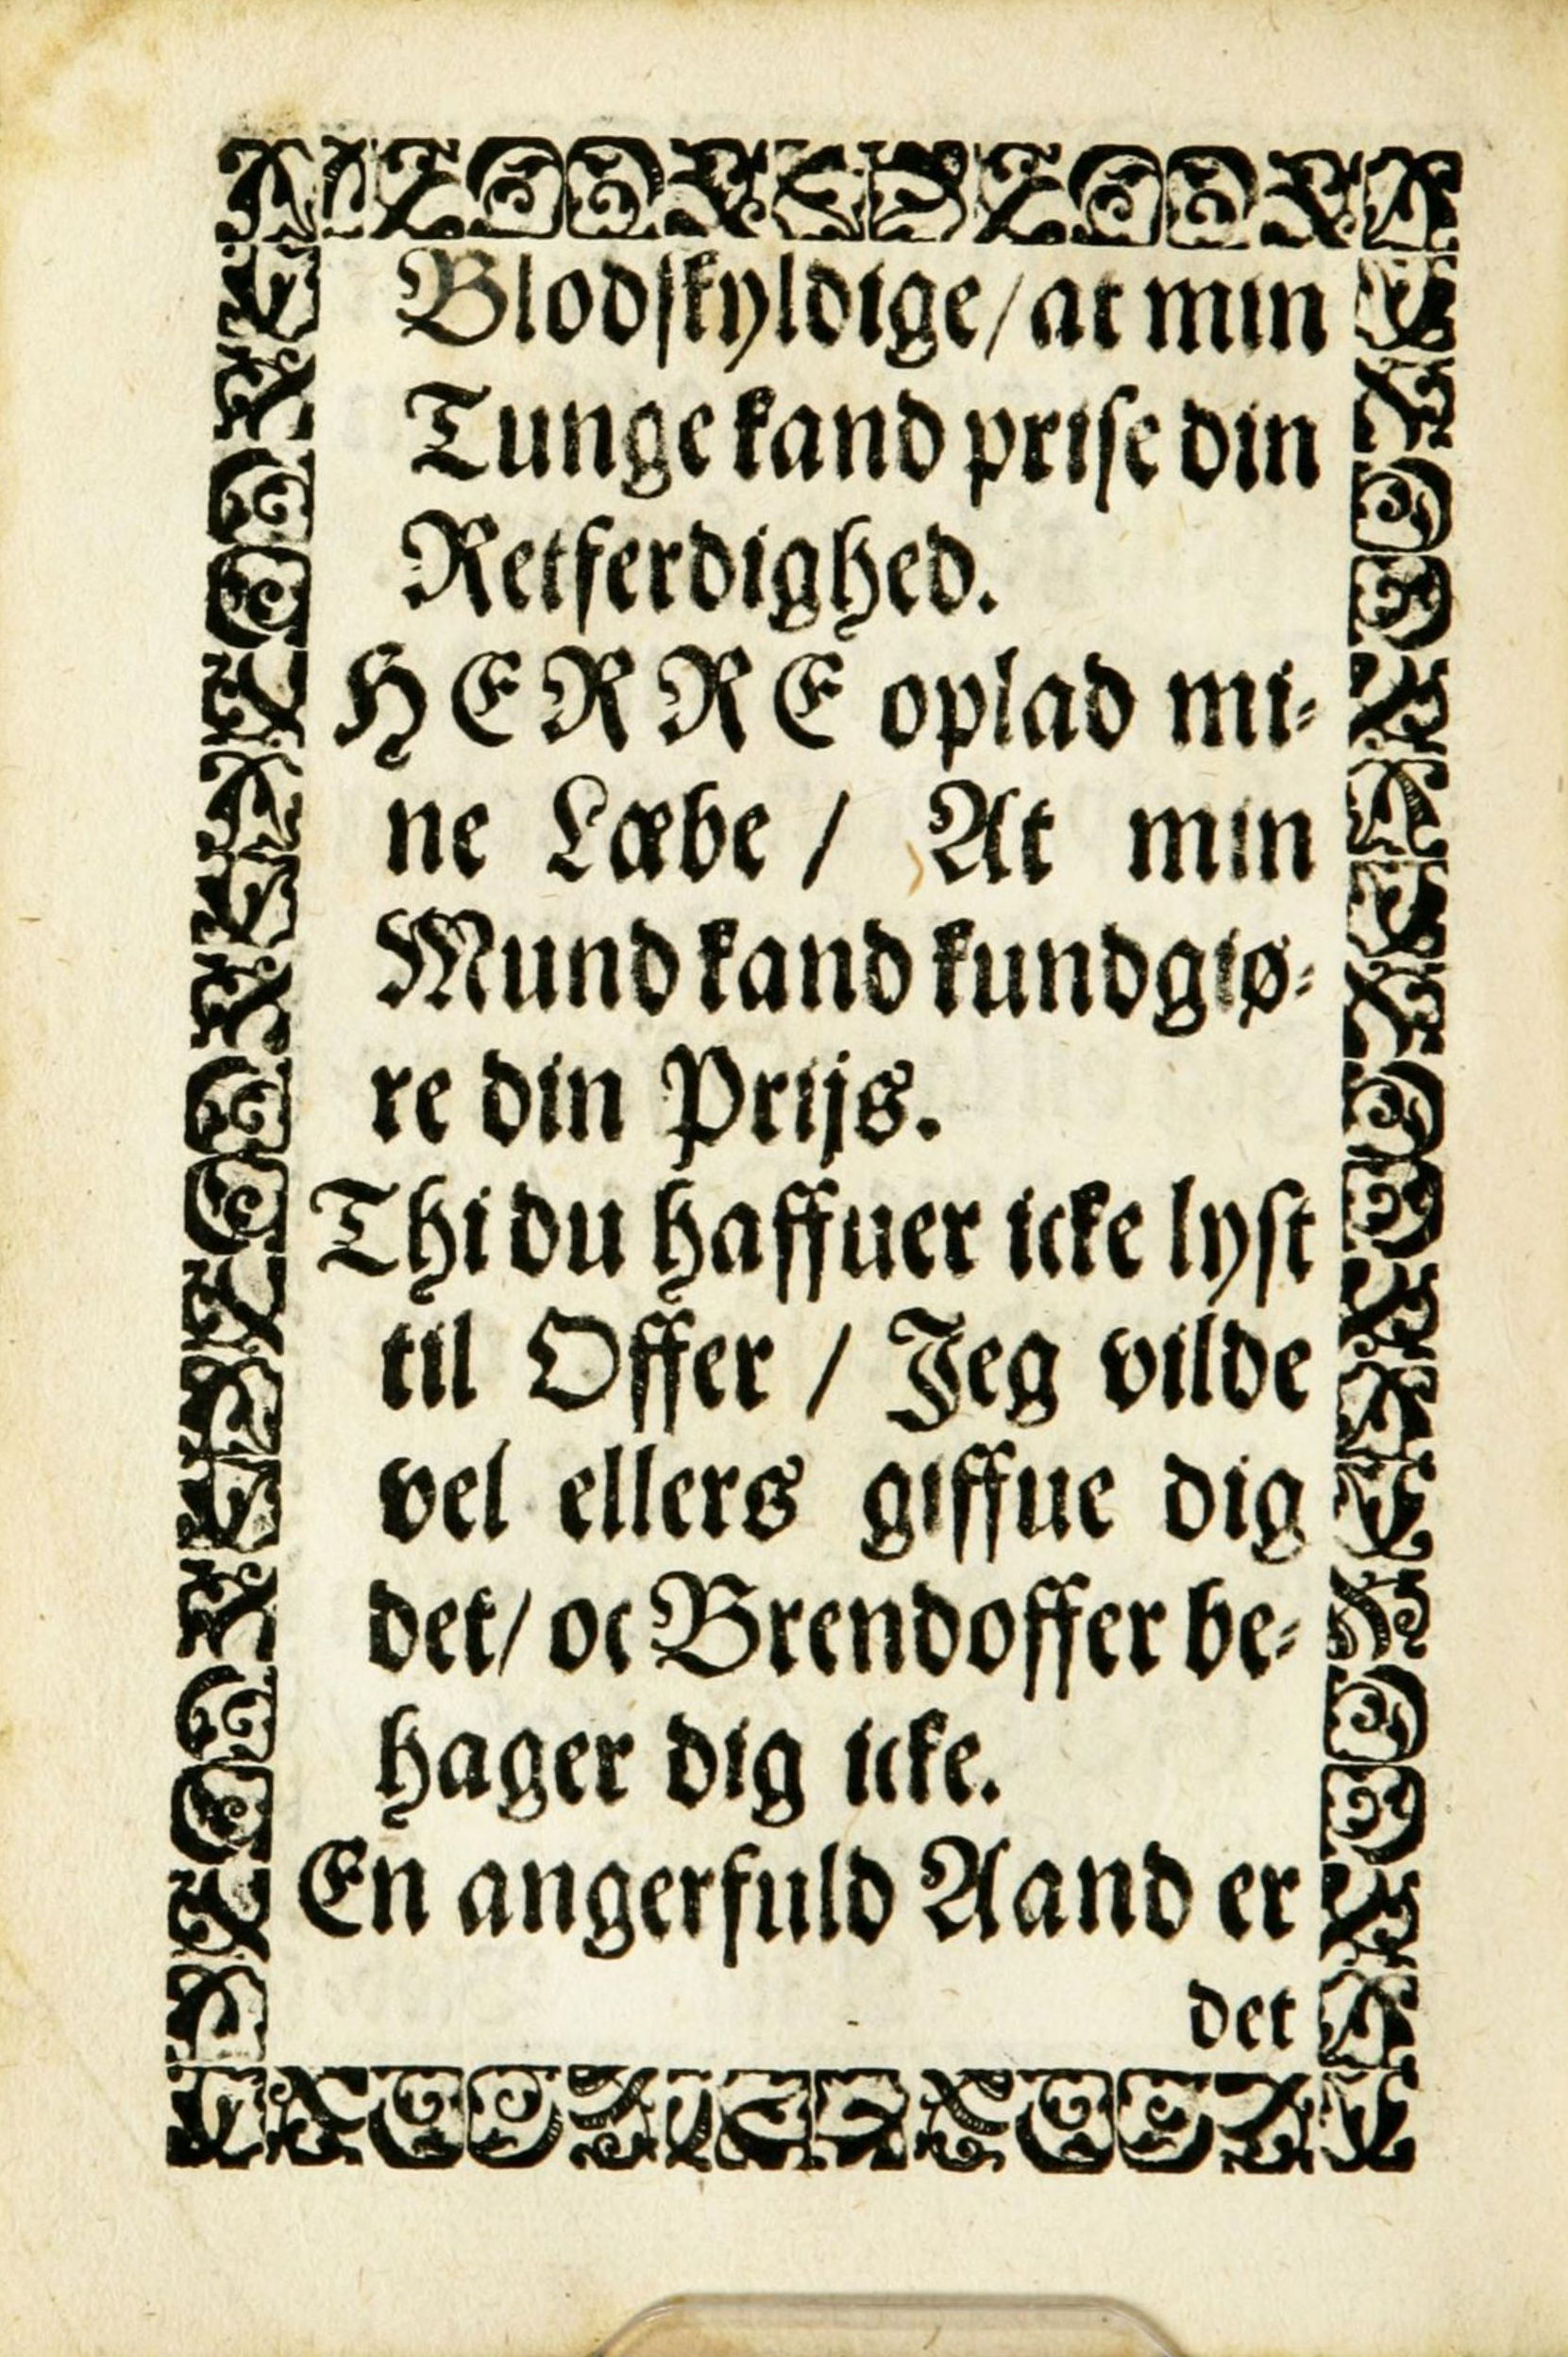 Blodſkyldige/ at min
Tunge kand priſe din
Retferdighed.
HERRE oplad mi-
ne Læbe / At min
Mund kand kundgiø-
re din Prijs.
Thi du haffuer icke lyſt
til Offer / Jeg vilde
vel ellers giffue dig
det/ oc Brendoffer be-
hager dig icke.
En angerfuld Aand er
det